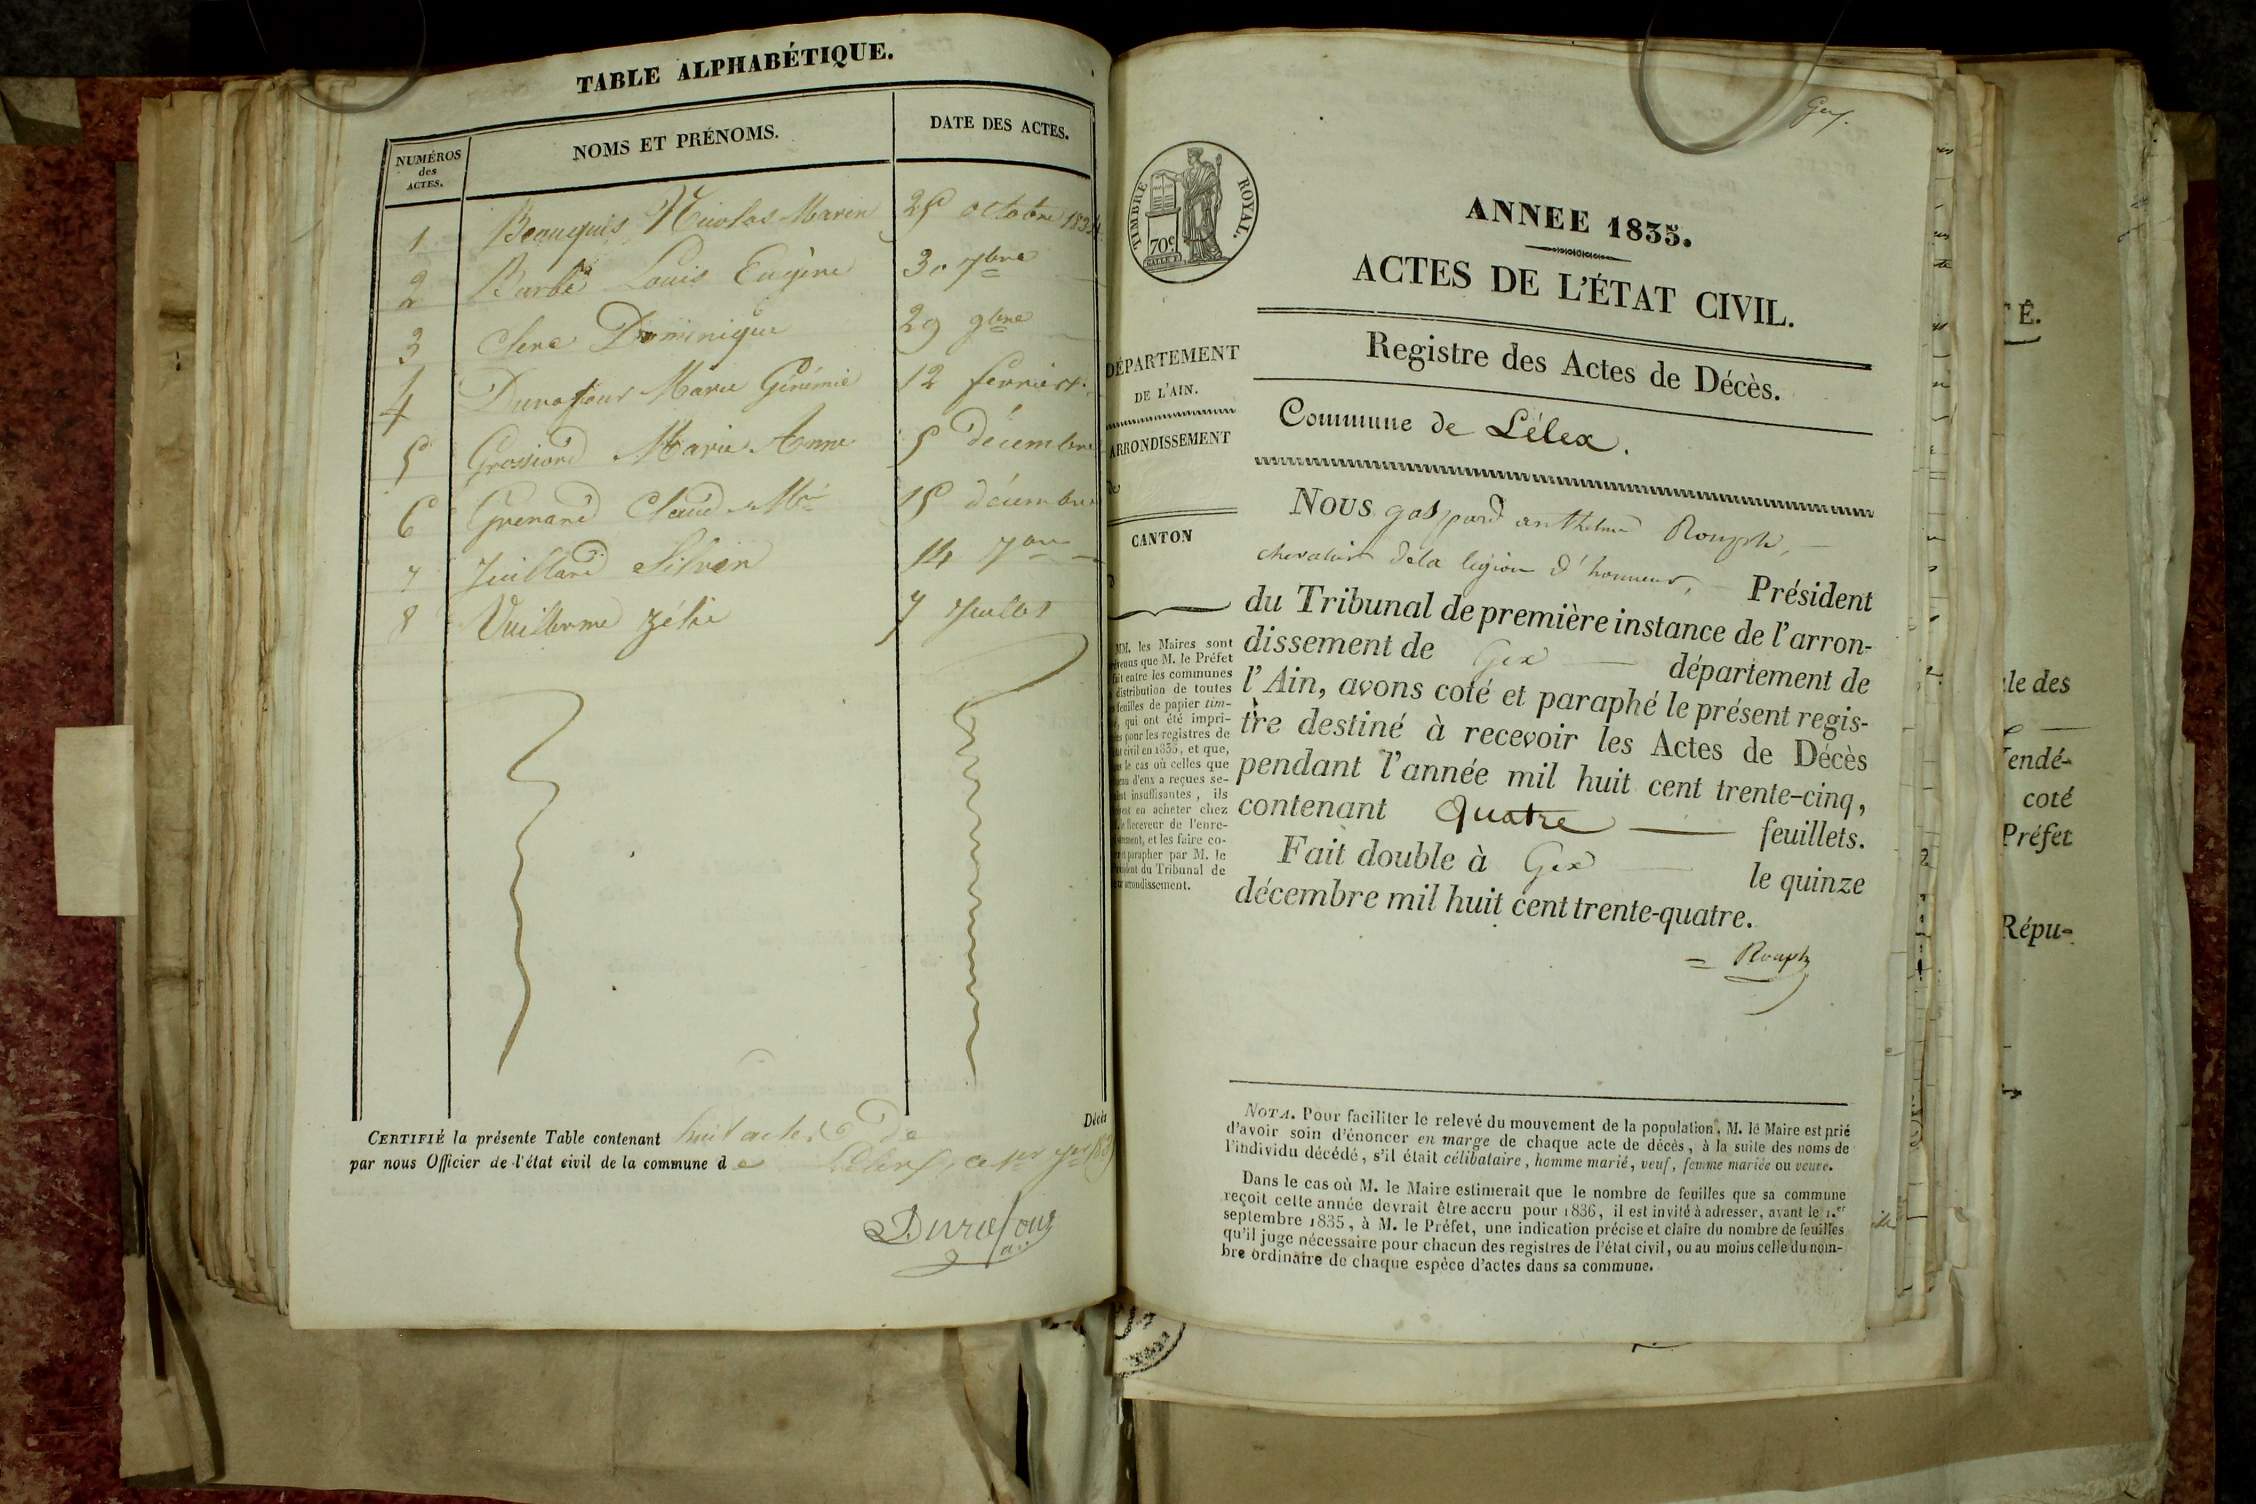 TABLE ALPHABÉTIQUE.
NUMÉROS
des
ACTES.
NOMS ET PRÉNOMS.
DATE DES ACTES.
1 Beauquis Nicolas Marin 25 octobre 1834
2 Barbe Louis Eugène 30 7bre
3 Clerc Dominique 29 9bre
4 Duraffour Marie Gérémie 12 fevrier
5 Grossiord Marie Anne 5 décembre
6 Grenard Claud Mie 15 décembre
7 Juilland Silvin 14
8 Vuillerme Zélie 7 Juillet
Décès
CERTIFIÉ la présente Table contenant huit actes de
par nous Officier de l'état civil de la commune de Lélex, ce 1er
Duraffour
Gex.
TIMBRE ROYAL.
70c
ANNEE 1835.
ACTES DE L'ÉTAT CIVIL.
Registre des Actes de Décès.
Commune de Lélex.
DÉPARTEMENT
DE L'AIN.
ARRONDISSEMENT
de
CANTON
d
MM. les Maires sont
que M. le Préfet
fait entre les communes
distribution de toutes
feuilles de papier tim-
qui ont été impri-
pour les registres de
civil en 1835, et que,
le cas où celles que
d'eux a reçues se-
insuffisantes, ils
en acheter chez
le Receveur de l'enre-
et les faire co-
parapher par M. le
du Tribunal de
arrondissement.
Nous gaspard anthelme Rouph,
chevalier dela légion d'honneur, Président
du Tribunal de première instance de l'arron-
dissement de Gex département de
l'Ain, avons coté et paraphé le présent regis-
tre destiné à recevoir les Actes de Décès
pendant l'année mil huit cent trente-cinq,
contenant quatre feuillets.
Fait double à Gex le quinze
décembre mil huit cent trente-quatre.
Rouph
NOTA. Pour faciliter le relevé du mouvement de la population, M. le Maire est prié
d'avoir soin d'énoncer en marge de chaque acte de décès, à la suite des noms de
l'individu décédé, s'il était célibataire, homme marié, veuf, femme mariée ou veuve.
Dans le cas où M. le Maire estimerait que le nombre de feuilles que sa commune
reçoit cette année devrait être accru pour 1836, il est invité à adresser, avant le 1.er
septembre 1835, à M. le Préfet, une indication précise et claire du nombre de feuilles
qu'il juge nécessaire pour chacun des registres de l'état civil, ou au moins celle du nom-
bre ordinaire de chaque espèce d'actes dans sa commune.
É.
le des
endé-
coté
Préfet
Répu-